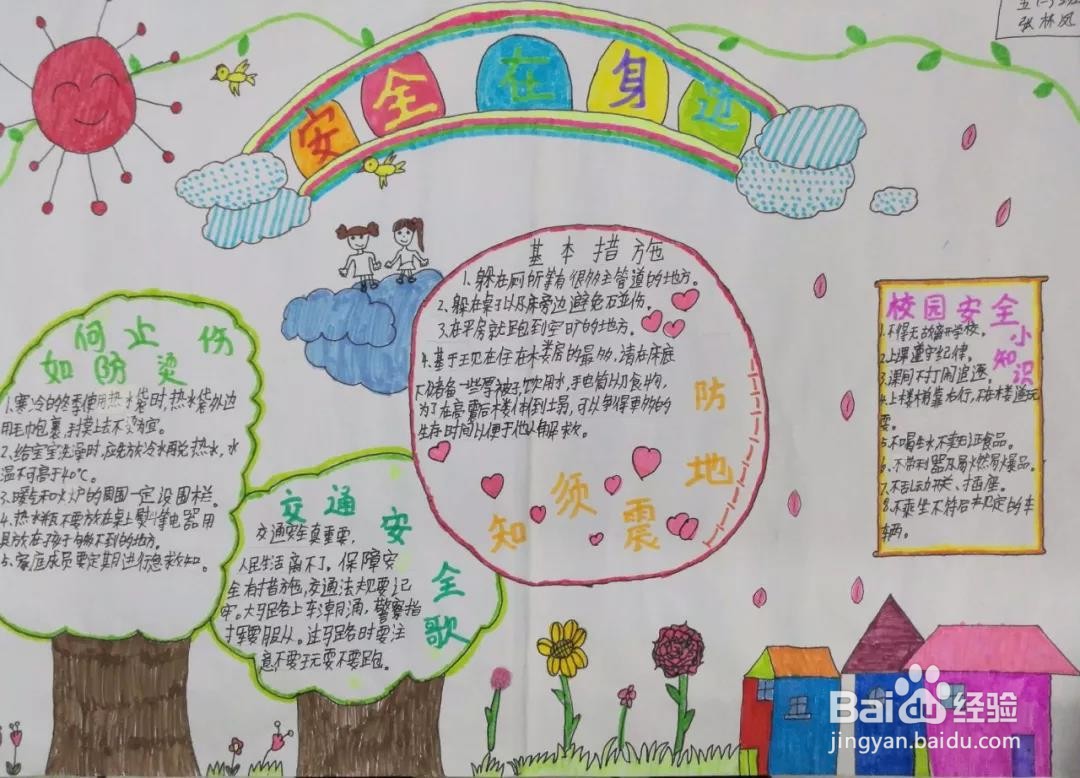 张林凤
安全在身边
基本措施
1、躲在厕所靠着很多主管道的地方。
2、躲在桌子以及床旁边避免石
3、在平房就跑到空旷的地方。
4、基于现在住在水楼房的最多，请在床底
下储备一些厚被子，饮用水，手电筒以及食物，
为了在高震后楼体倒塌，可以争得更多的
生存时间以便于他人解救。
防
地
震
须
知
校园安全
小知识
1.不得无故离开学校。
2.上课遵守纪律。
3.课间不打闹追逐。
4.上楼梯靠右行，不在楼道玩
耍。
5.不喝生水不卖无证食品。
6.不带利器及易燃易爆品。
7.不乱动开关、插座。
8.不乘坐不符合规定的车
辆。
如何防止烫伤
1.寒冷的冬季使用热水袋时，热水袋外边
用毛巾包裹，手摸上去不烫为宜。
2、给宝宝洗澡时，应先放冷水再兑热水，水
温不可高于40℃。
3、暖气和火炉的周围一定设围栏。
4、热水瓶不要放在桌上熨斗等电器用
具放在孩子够不到的地方。
5、家庭成员要定期进行急救知。
交通安全歌
交通安全真重要，
人民生活离不了。保障安
全有措施，交通法规要记
牢。大马路上车潮涌，警察指
挥要服从。过马路时要注
意，不要玩耍不要跑。
Baidu经验
jingyan.baidu.com